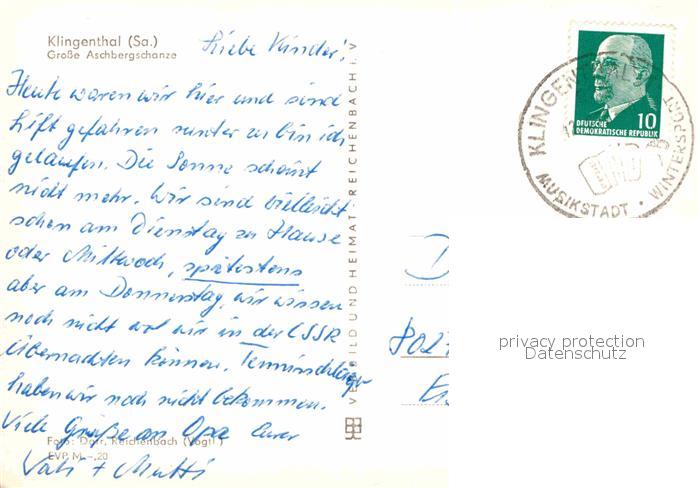 Klingenthal (Sa.)
Große Aschbergschanze
Liebe Kinder!
Heute waren wir hier und sind
Lift gefahren runter zu bin ich
gelaufen. Die Sonne scheint
nicht mehr. Wir sind vielleicht
schon am Dienstag zu Hause
oder Mittwoch, spätestens
aber am Donnerstag, wir wissen
noch nicht wo wir in der CSSR
übernachten können. Tennisschläger
haben wir noch nicht bekommen.
Viele Grüße an Opa Eure
Vati + Mutti
Foto: Dörr, Reichenbach (Vogtl.)
EVP M -,20
VEB BILD UND HEIMAT REICHENBACH I. V
10
DEUTSCHE
DEMOKRATISCHE REPUBLIK
KLINGENTHAL
MUSIKSTADT · WINTERSPORT
802
privacy protection
Datenschutz